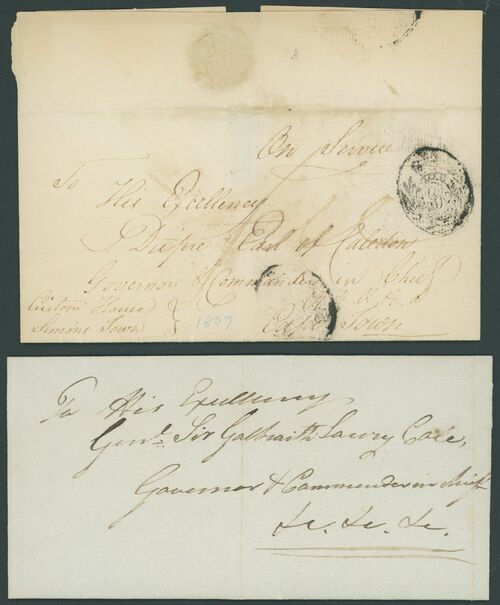 On Service
To
His Excellency
Du Pre Earl of Caledon
Governor & Commander in Chief
&c &c &c
Custom House
Simons Town
1809
Cape Town
To His Excellency
Genl. Sir Galbraith Lowry Cole
Governor & Commander in Chief
&c. &c. &c.